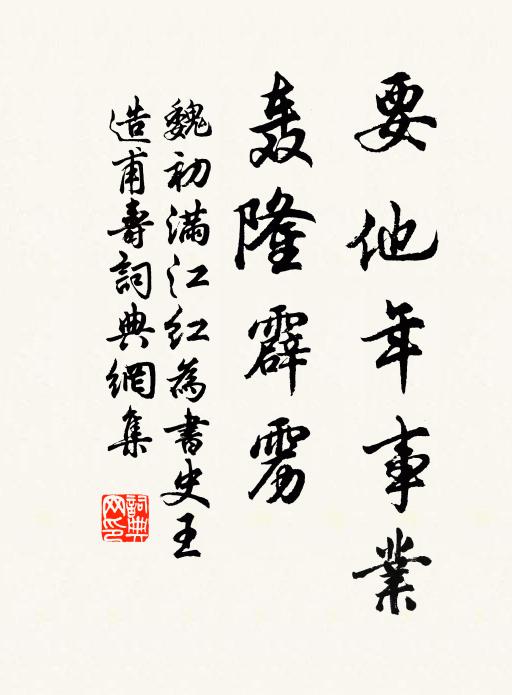 要他年事業
轰隆霹雳
魏初滿江紅為書史王
造甫壽詞典網集
詞典網印